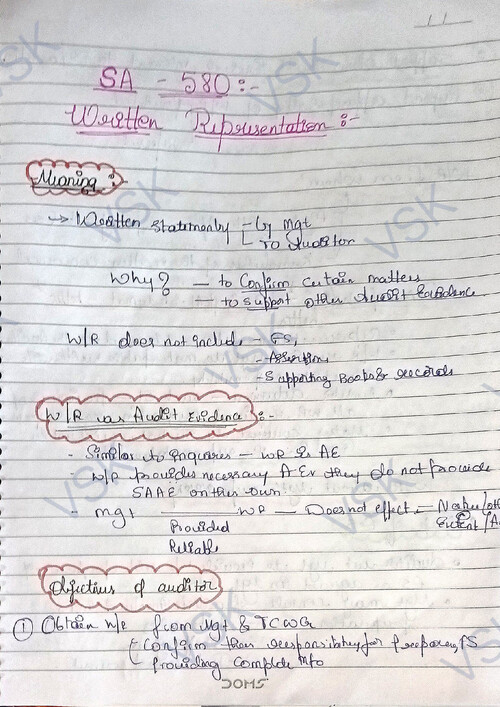 SA - 580:-
Written Representation :-
Meaning :-
→ Written statement by - by mgt
To Auditor
Why? - to Confirm certain matters
- to support other Audit Evidence
W/R does not include - FS,
- Assertions
- Supporting Books & records
W/R as Audit Evidence :-
- Similar to inquires - WR is AE
W/R provides necessary A.Ev they do not provide
SAAE on their own
- mgt WR - Does not effect - Nature/oth
Provided Extent/A
Reliable
Objectives of auditor
① Obtain W/R from Mgt & TCWG
Confirm their responsibility for preparing FS
Providing Complete info
DOMS
VSK
VSK
VSK
VSK
VSK
VSK
VSK
VSK